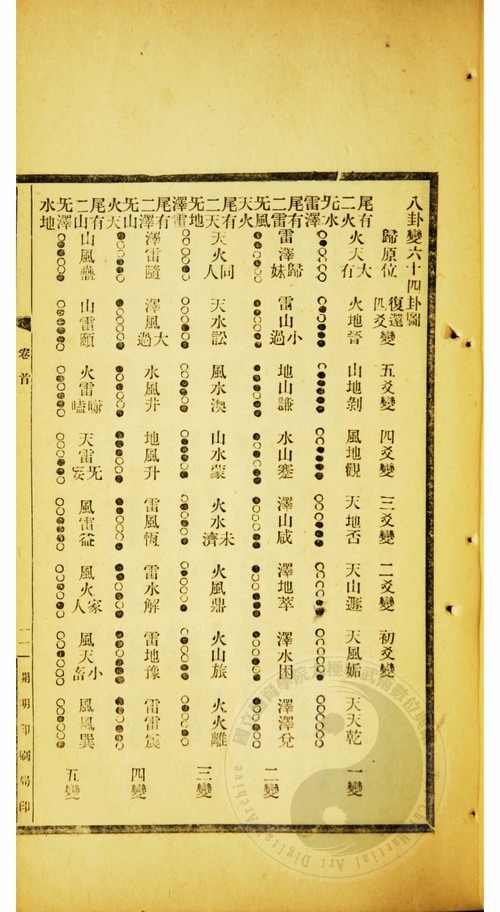 八卦變六十四卦圖
歸原位 復還四爻變 五爻變 四爻變 三爻變 二爻變 初爻變
尾有二火旡水雷澤
火天大有 火地晉 山地剝 風地觀 天地否 天山遯 天風姤 天天乾 一變
尾有二雷旡風天火
雷澤歸妹 雷山小過 地山謙 水山蹇 澤山咸 澤地萃 澤水困 澤澤兌 二變
尾有二天旡地澤雷
天火同人 天水訟 風水渙 山水蒙 火水未濟 火風鼎 火山旅 火火離 三變
尾有二澤旡山火天
澤雷隨 澤風大過 水風井 地風升 雷風恆 雷水解 雷地豫 雷雷震 四變
尾有二山旡澤水地
山風蠱 山雷頤 火雷噬嗑 天雷旡妄 風雷益 風火家人 風天小畜 風風巽 五變
卷首
二
開明印刷局印
Martial Art Digital Archive